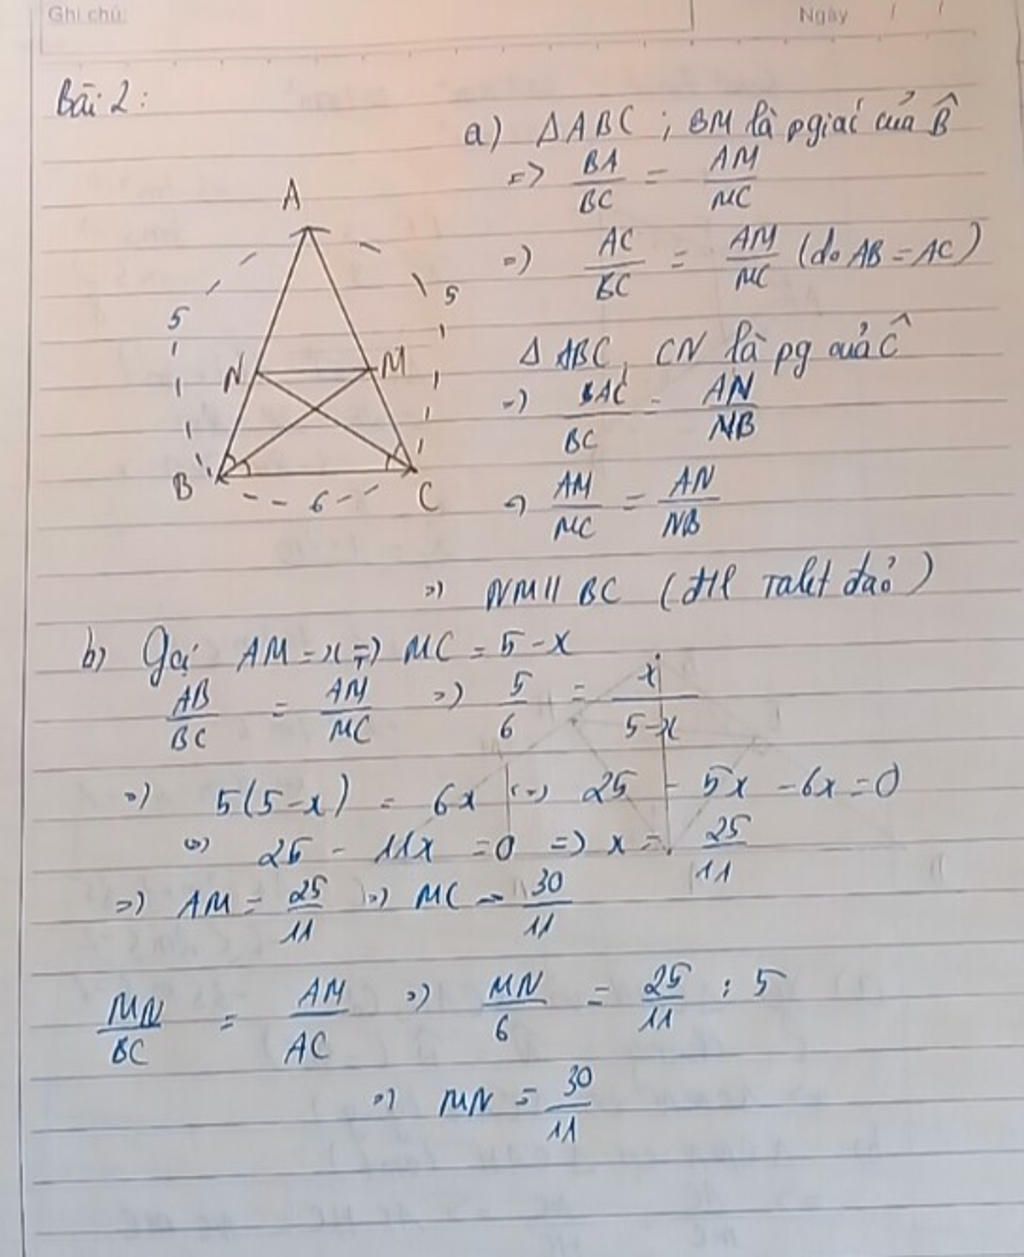 Ghi chú:
Ngày / /
Bài 2:
a) ΔABC ; BM là pgiác của B̂
=> BA/BC = AM/MC
=> AC/BC = AM/MC (do AB = AC)
Δ ABC, CN là pg của Ĉ
=> AC/BC = AN/NB
=> AM/MC = AN/NB
=> NM // BC (đlí Talet đảo)
A
5
5
N
M
B
6
C
b) Gọi AM = x => MC = 5 - x
AB/BC = AM/MC => 5/6 = x/5-x
=> 5(5-x) = 6x <=> 25 - 5x - 6x = 0
<=> 25 - 11x = 0 => x = 25/11
=> AM = 25/11 => MC = 30/11
MN/BC = AM/AC => MN/6 = 25/11 : 5
=> MN = 30/11